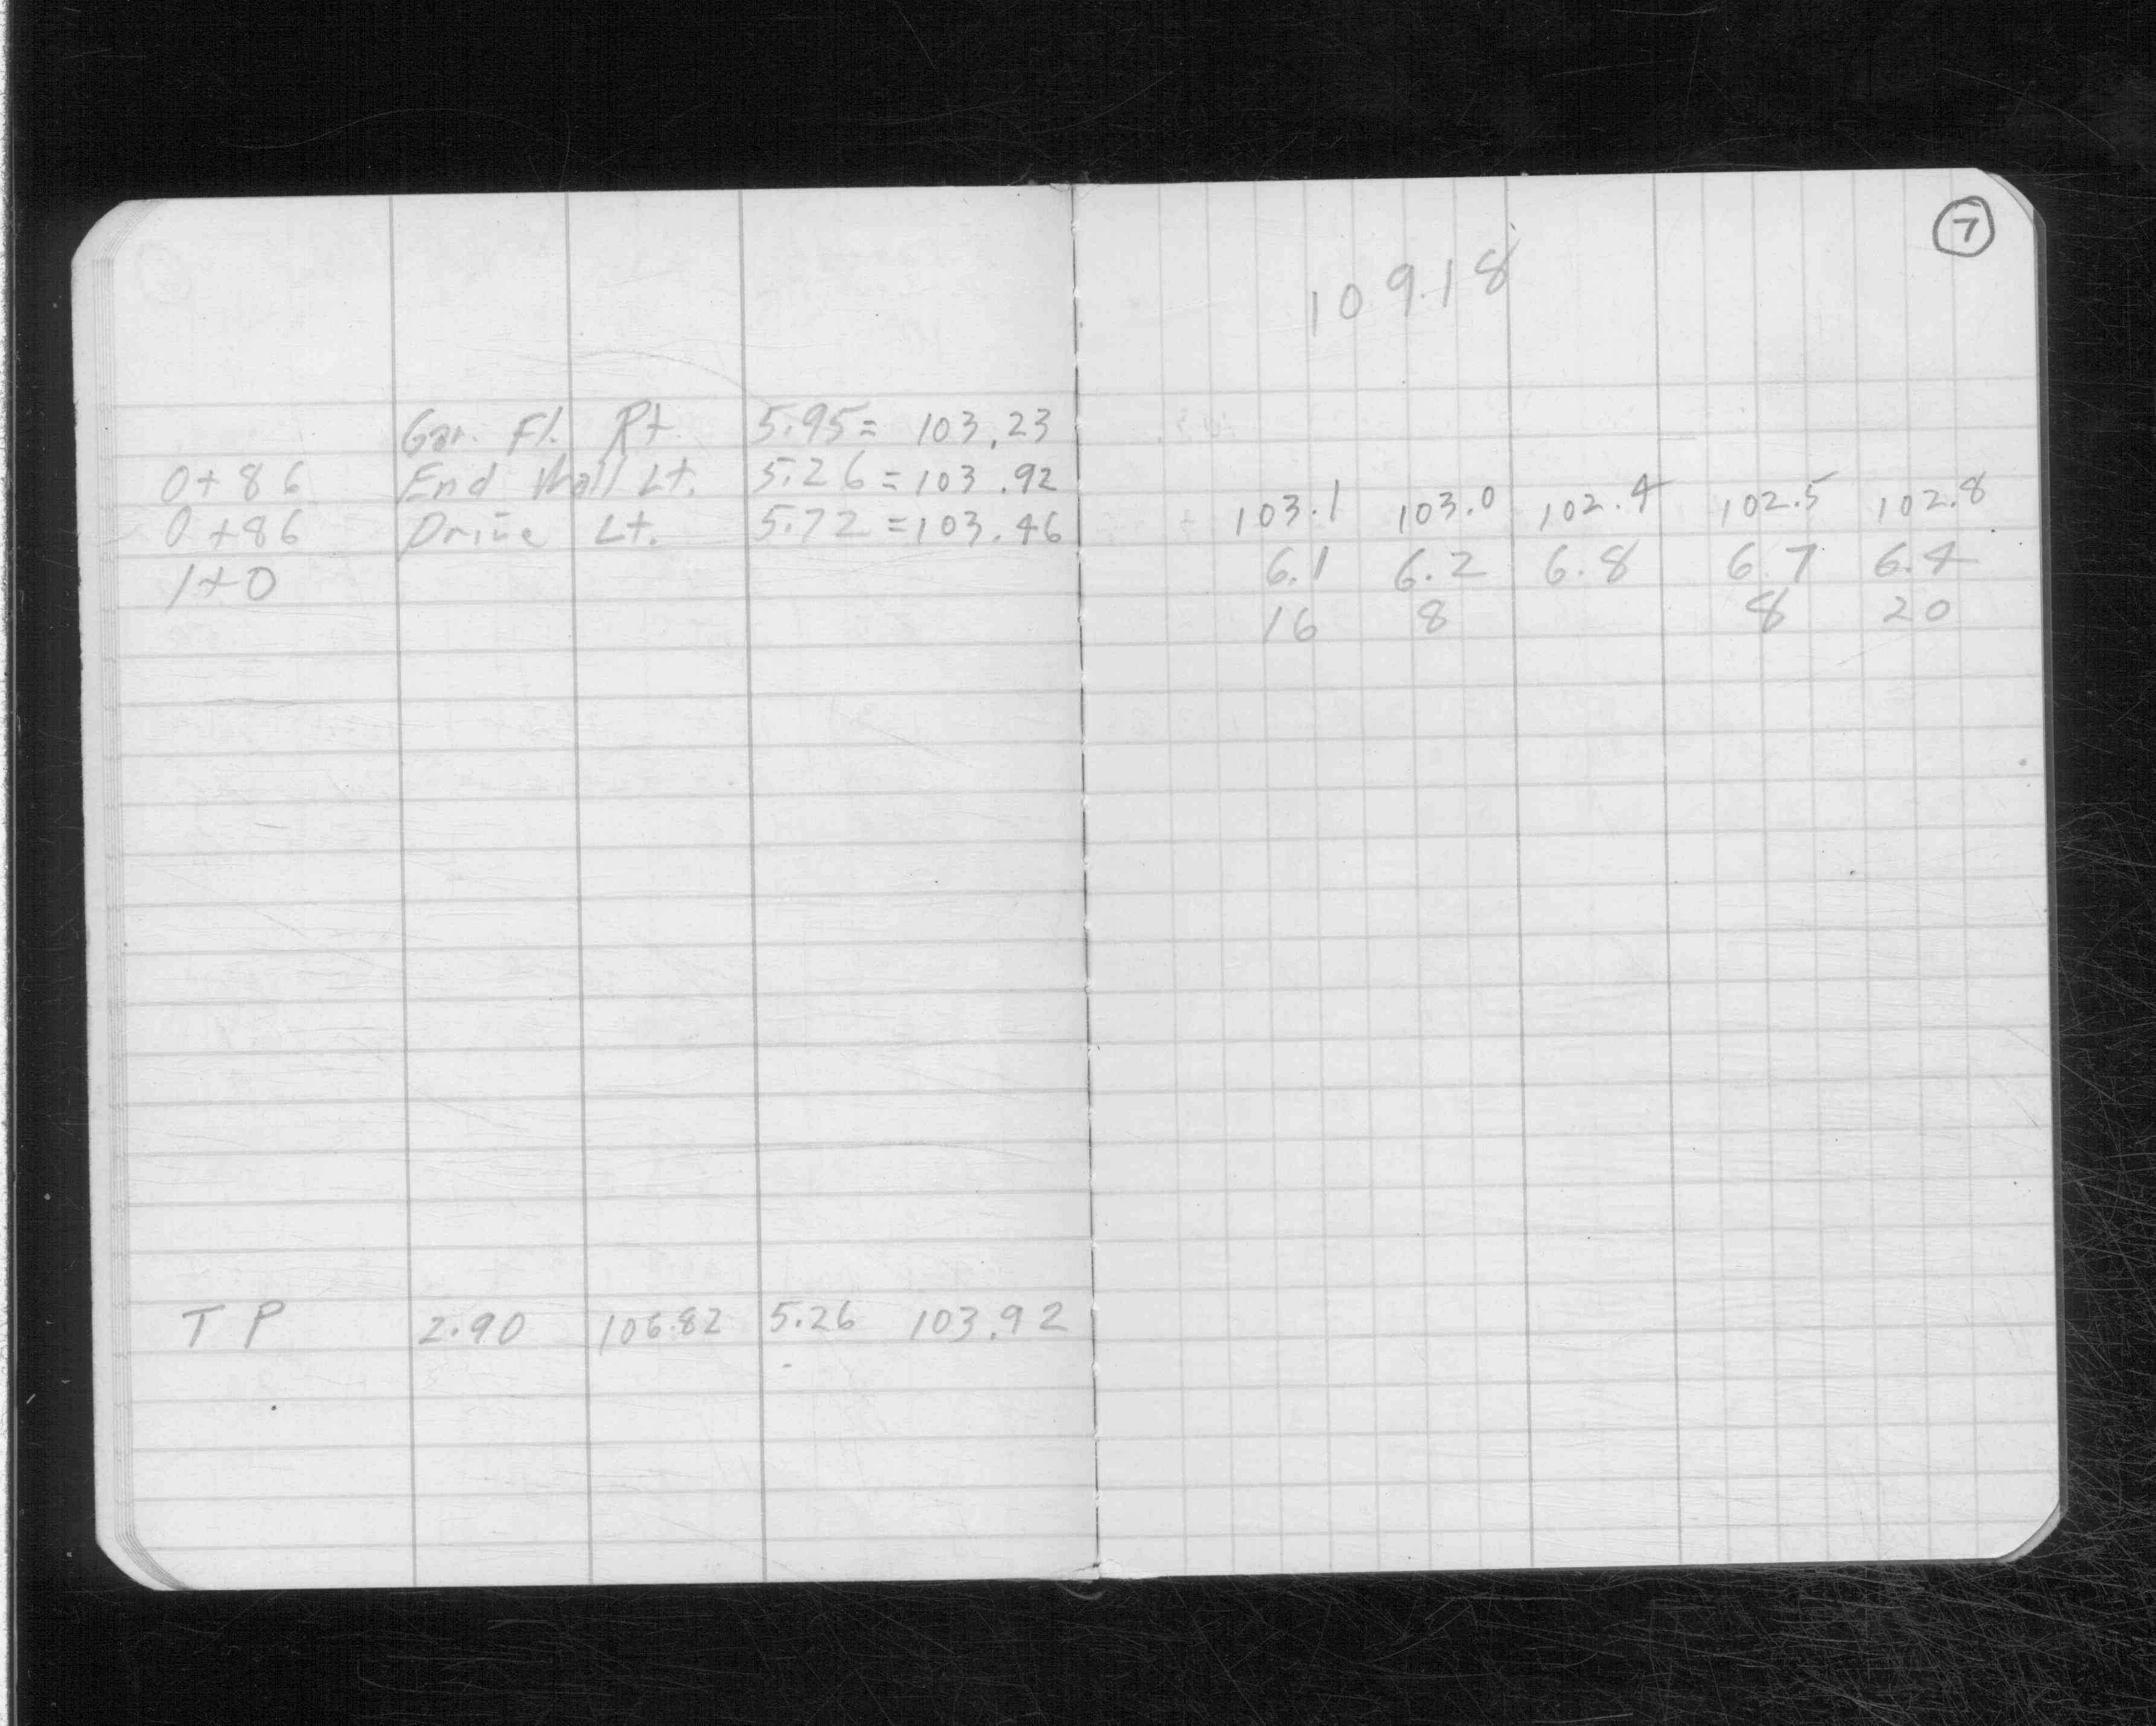 Gar. Fl. Rt. 5.95 = 103.23
0+86 End Wall Lt. 5.26 = 103.92
0+86 Drive Lt. 5.72 = 103.46
1+0
T P 2.90 106.82 5.26 103.92
7
109.18
103.1 103.0 102.4 102.5 102.8
6.1 6.2 6.8 6.7 6.4
16 8 8 20